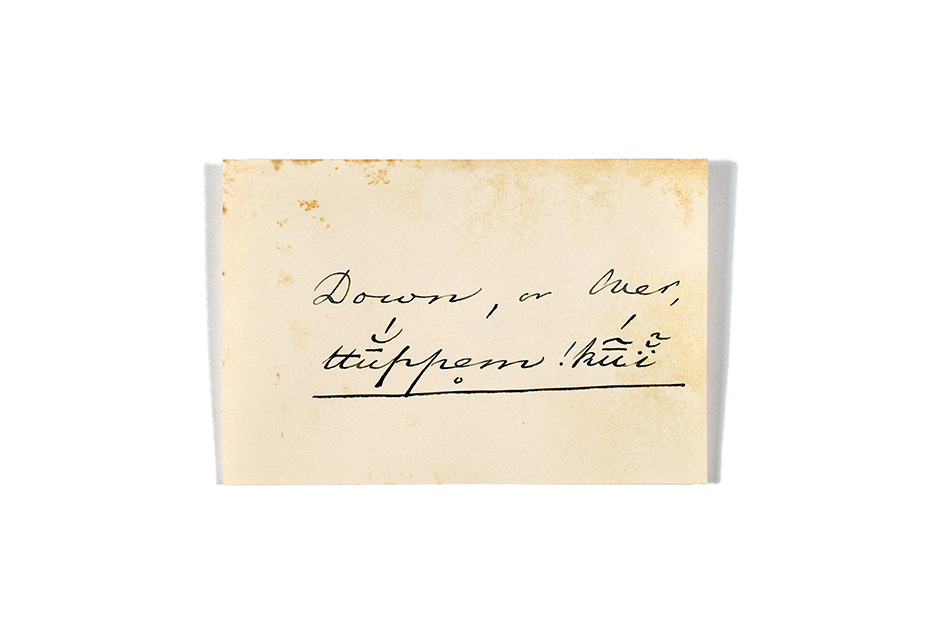 Down, or Over,
ttŭ̄́ppe̥m !kũ̄́ï̆̃